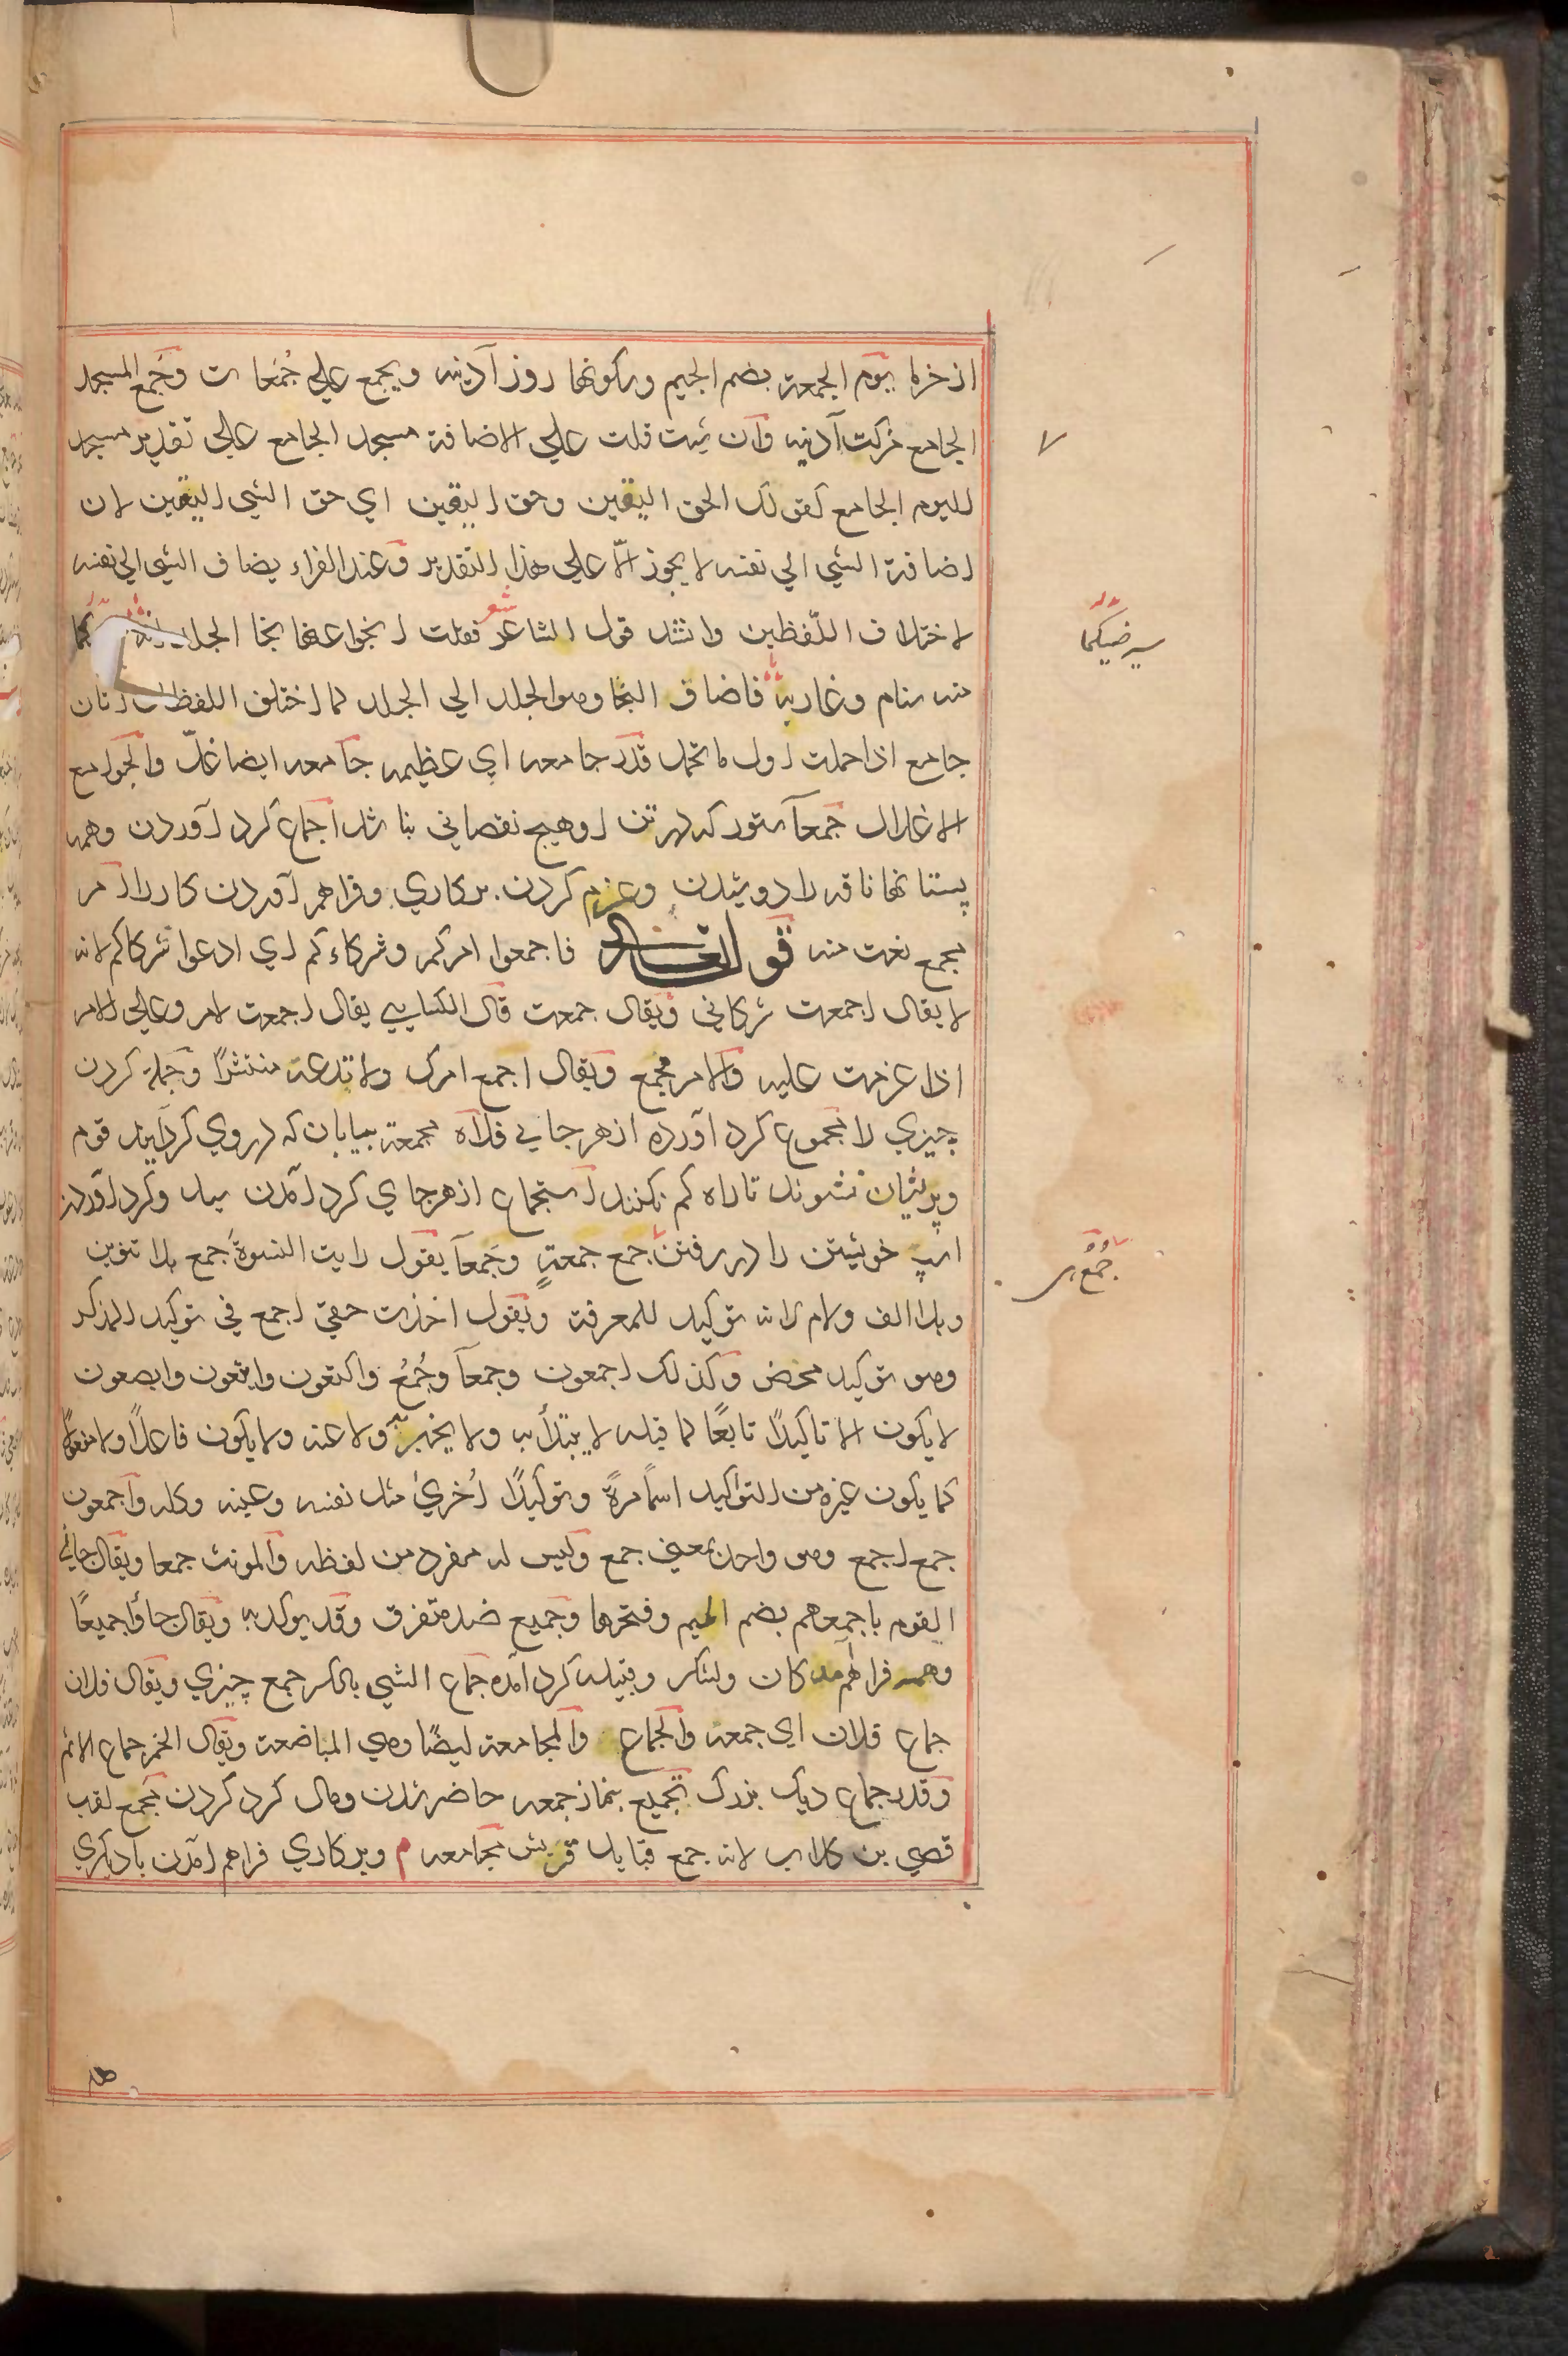 از خرما يوم الجمعة بضم الجيم وسكونها روز آدينه ويجمع علي جُمُعات وجُمَع المسجد
الجامع مزكت آدينه وان شئت قلت علي الاضافة مسجد الجامع علي تقدير مسجد
لليوم الجامع كقولك الحق اليقين وحق اليقين اي حق الشي اليقين لان
اضافة الشي الي نفسه لا يجوز الّا علي هذا التقدير وعند الفراء يضاف الشي الي نفسه
لاختلاف اللّفظين وانشد قول الشاعر شعر فقلت انجوا عنها نجا الجلد انه
سيرضيكما
منه سنام وغاربه فاضاف النجا وهو الجلد الي الجلد لما اختلف اللفظان اتان
جامع اذا حملت اول ما تحمل قدر جامعه اي عظيمه جامعه ايضا غلّ والجوامع
الاغلال جمعآ ستور كه از تن او هيچ نقصاني نباشد اجماع كرد آوردن وهمه
پستانها ناقه را دوشيدن وعزم كردن بر كاري وفراهم آوردن كار را امر
مجمع نعت منه قوله تعالي فاجمعوا امركم وشركاءكم اي ادعوا شركاكم لانه
لا يقال اجمعت شركائي ويقال جمعت قال الكسايي يقال اجمعت الامر وعلي الامر
اذا عزمت عليه والامر مجمع ويقال اجمع امرك ولا تدعه منتشرًا وجمله كردن
چيزي را مجموع كرد آورده از هر جايي فلاة مجمعة بيابان كه در وي كرد آيند قوم
وپريشان نشوند تا راه كم نكنند استجماع از هر جاي كرد آمدن سيل وكرد آوردن
اسپ خويشتن را در رفتن جمع جمعةٍ وجمعآ يقول رايت النسوةَ جمع بلا تنوين
جُمَعُ
وبلا الف ولام لانه توكيد للمعرفة ويقول اخذت حقي اجمع في توكيد المذكر
وهو توكيد محض وكذلك اجمعون وجمعآ وجُمَعُ واكتعون وابتعون وابصعون
لا يكون الا تاكيدًا تابعًا لما قبله لا يبتدأ به ولا يخبر به ولا عنه ولا يكون فاعلًا ولا مفعولًا
كما يكون غيره من التواكيد اسمًا مرةً وتوكيدًا اُخريٰ مثل نفسه وعينه وكله واجمعون
جمع اجمع وهو واحد بمعني جمع وليس له مفرد من لفظه والمونث جمعا ويقال جاني
القوم باجمعهم بضم الميم وفتحها وجميع ضد متفرق وقد يوكد به ويقال جاؤا جميعًا
وهمه فراهم آمدكان ولشكر وقبيله كرد آمده جماع الشي بالكسر جمع چيزي ويقال فلان
جماع فلان اي جمعة والجماع والمجامعة ايضًا وهي المباضعة ويقال الخمر جماع الاثم
وقدر جماع ديك بزرك تجميع بنماز جمعه حاضر شدن ومال كرد كردن مجمع لقب
قصي بن كلاب لانه جمع قبايل قريش مجامعه م وبر كاري فراهم آمدن با ديكري